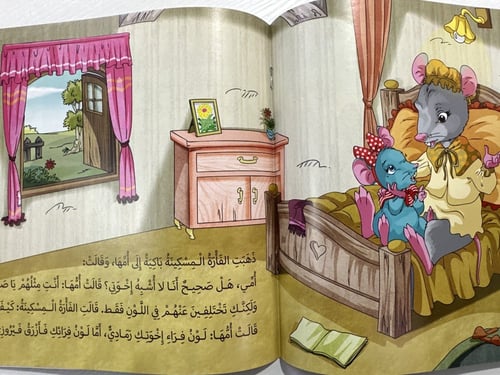 ذَهَبَتِ الفَأْرَةُ الْـمِسْكِينَةُ بَاكِيَةً إِلَى أُمِّهَا، وَقَالَتْ:
أُمِّي، هَلْ صَحِيحٌ أَنَا لا أُشْبِهُ إِخْوَتِي؟ قَالَتْ أُمُّهَا: أَنْتِ مِثْلُهُمْ يَا
وَلَكِنَّكِ تَخْتَلِفِينَ عَنْهُمْ فِي اللَّوْنِ فَقَطْ. قَالَتِ الفَأْرَةُ الْـمِسْكِينَةُ:
قَالَتْ أُمُّهَا: لَوْنُ فِرَاءِ إِخْوَتِكِ رَمَادِيٌّ، أَمَّا لَوْنُ فِرَائِكِ فَأَزْرَقُ